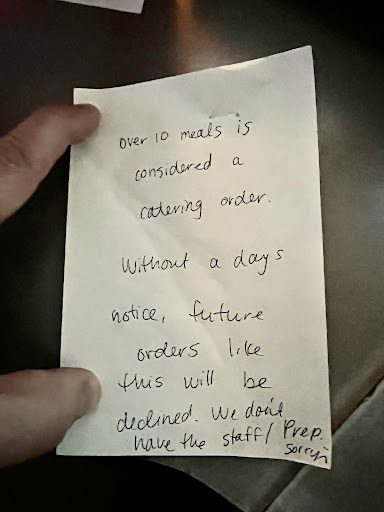 over 10 meals is
considered a
catering order.
Without a days
notice, future
orders like
this will be
declined. We don't
have the staff/ Prep.
sorry